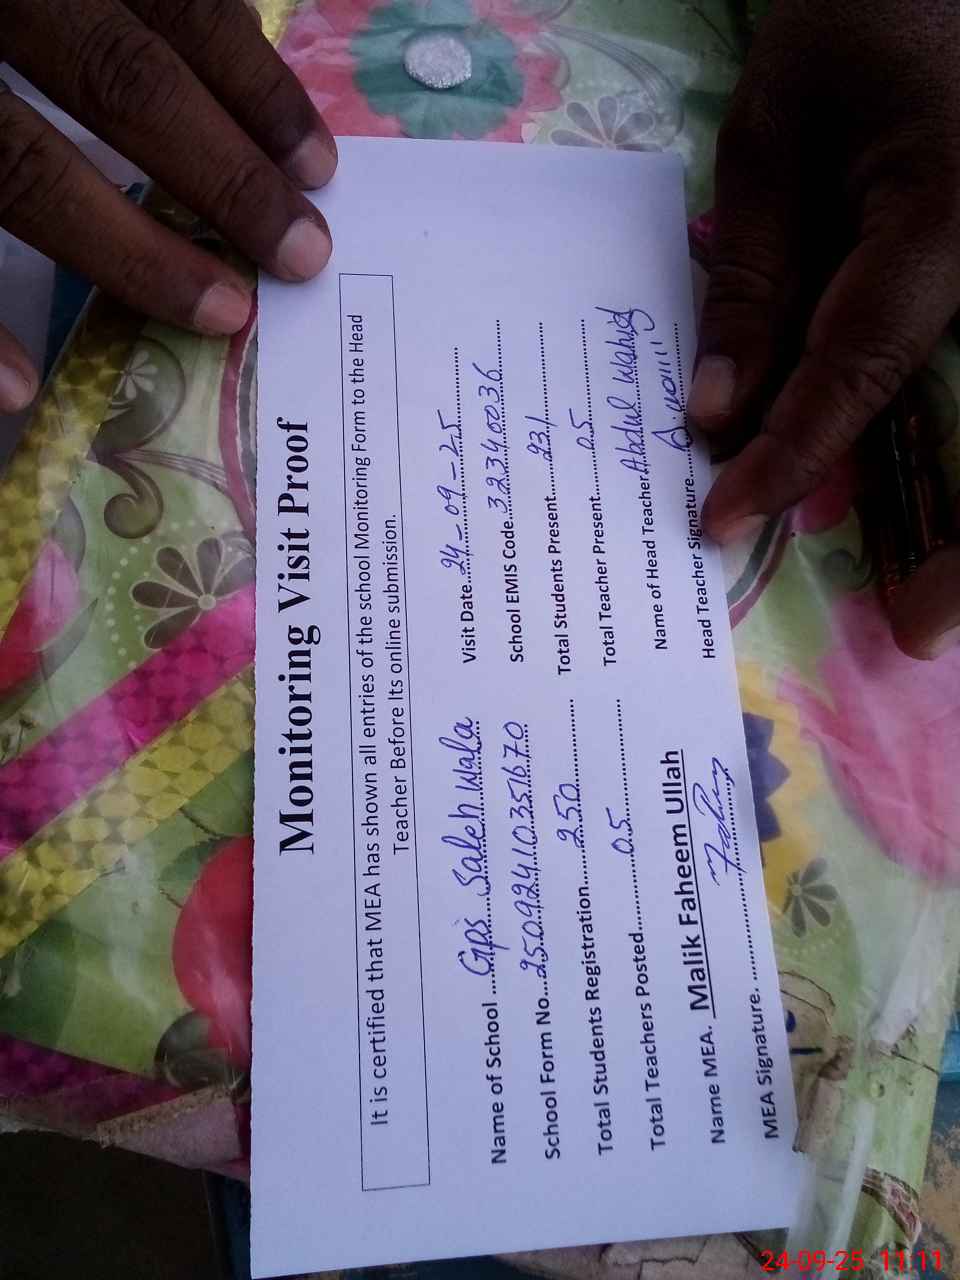 Monitoring Visit Proof
It Is certified that MEA has shown all entries of the school Monitoring Form to the Head
Teacher Before Its online submission.
Name of School ........Gps Saleh Wala
Visit Date...24-09-25..........
School Form No...25092410351670
School EMIS Code...32340036..........
Total Students Registration.......250..............
Total Students Present.......231................
Total Teachers Posted............05....................
Total Teacher Present..........05..................
Name MEA. Malik Faheem Ullah
Name of Head Teacher Abdul Wahid
MEA Signature. ..........................
Head Teacher Signature..........................
24-09-25 11:11